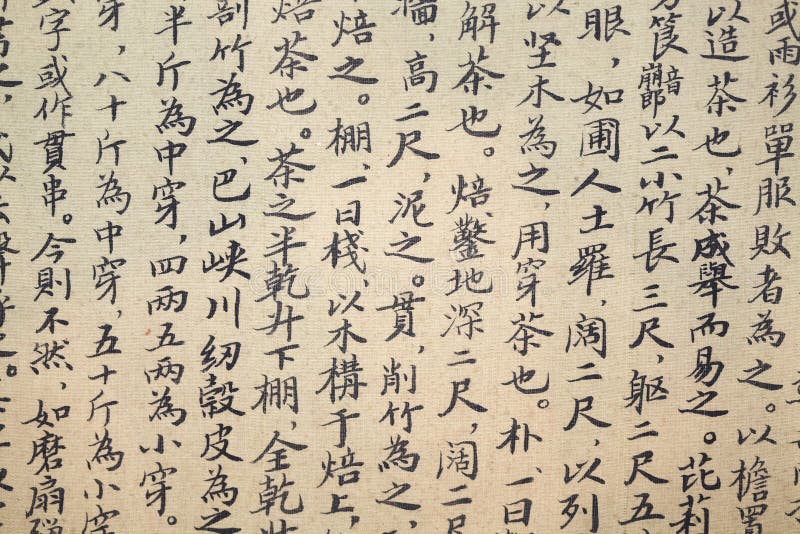 或雨衫單服敗者為之。以檐置
以造茶也,茶成舉而易之。芘莉
筤音崩郎以二小竹長三尺,軀二尺五
眼,如圃人土羅,闊二尺,以列
以坚木為之,用穿茶也。朴、一曰
解茶也。焙、鑿地深二尺,闊二尺
墻,高二尺,泥之。貫,削竹為之,
焙之。棚、一曰棧,以木構于焙上,
焙茶也。茶之半乾升下棚,全乾
剖竹為之,巴山峽川紉穀皮為之
半斤為中穿,四兩五兩為小穿。
穿,八十斤為中穿,五十斤為小穿
字或作貫串。今則不然,如磨扇彈